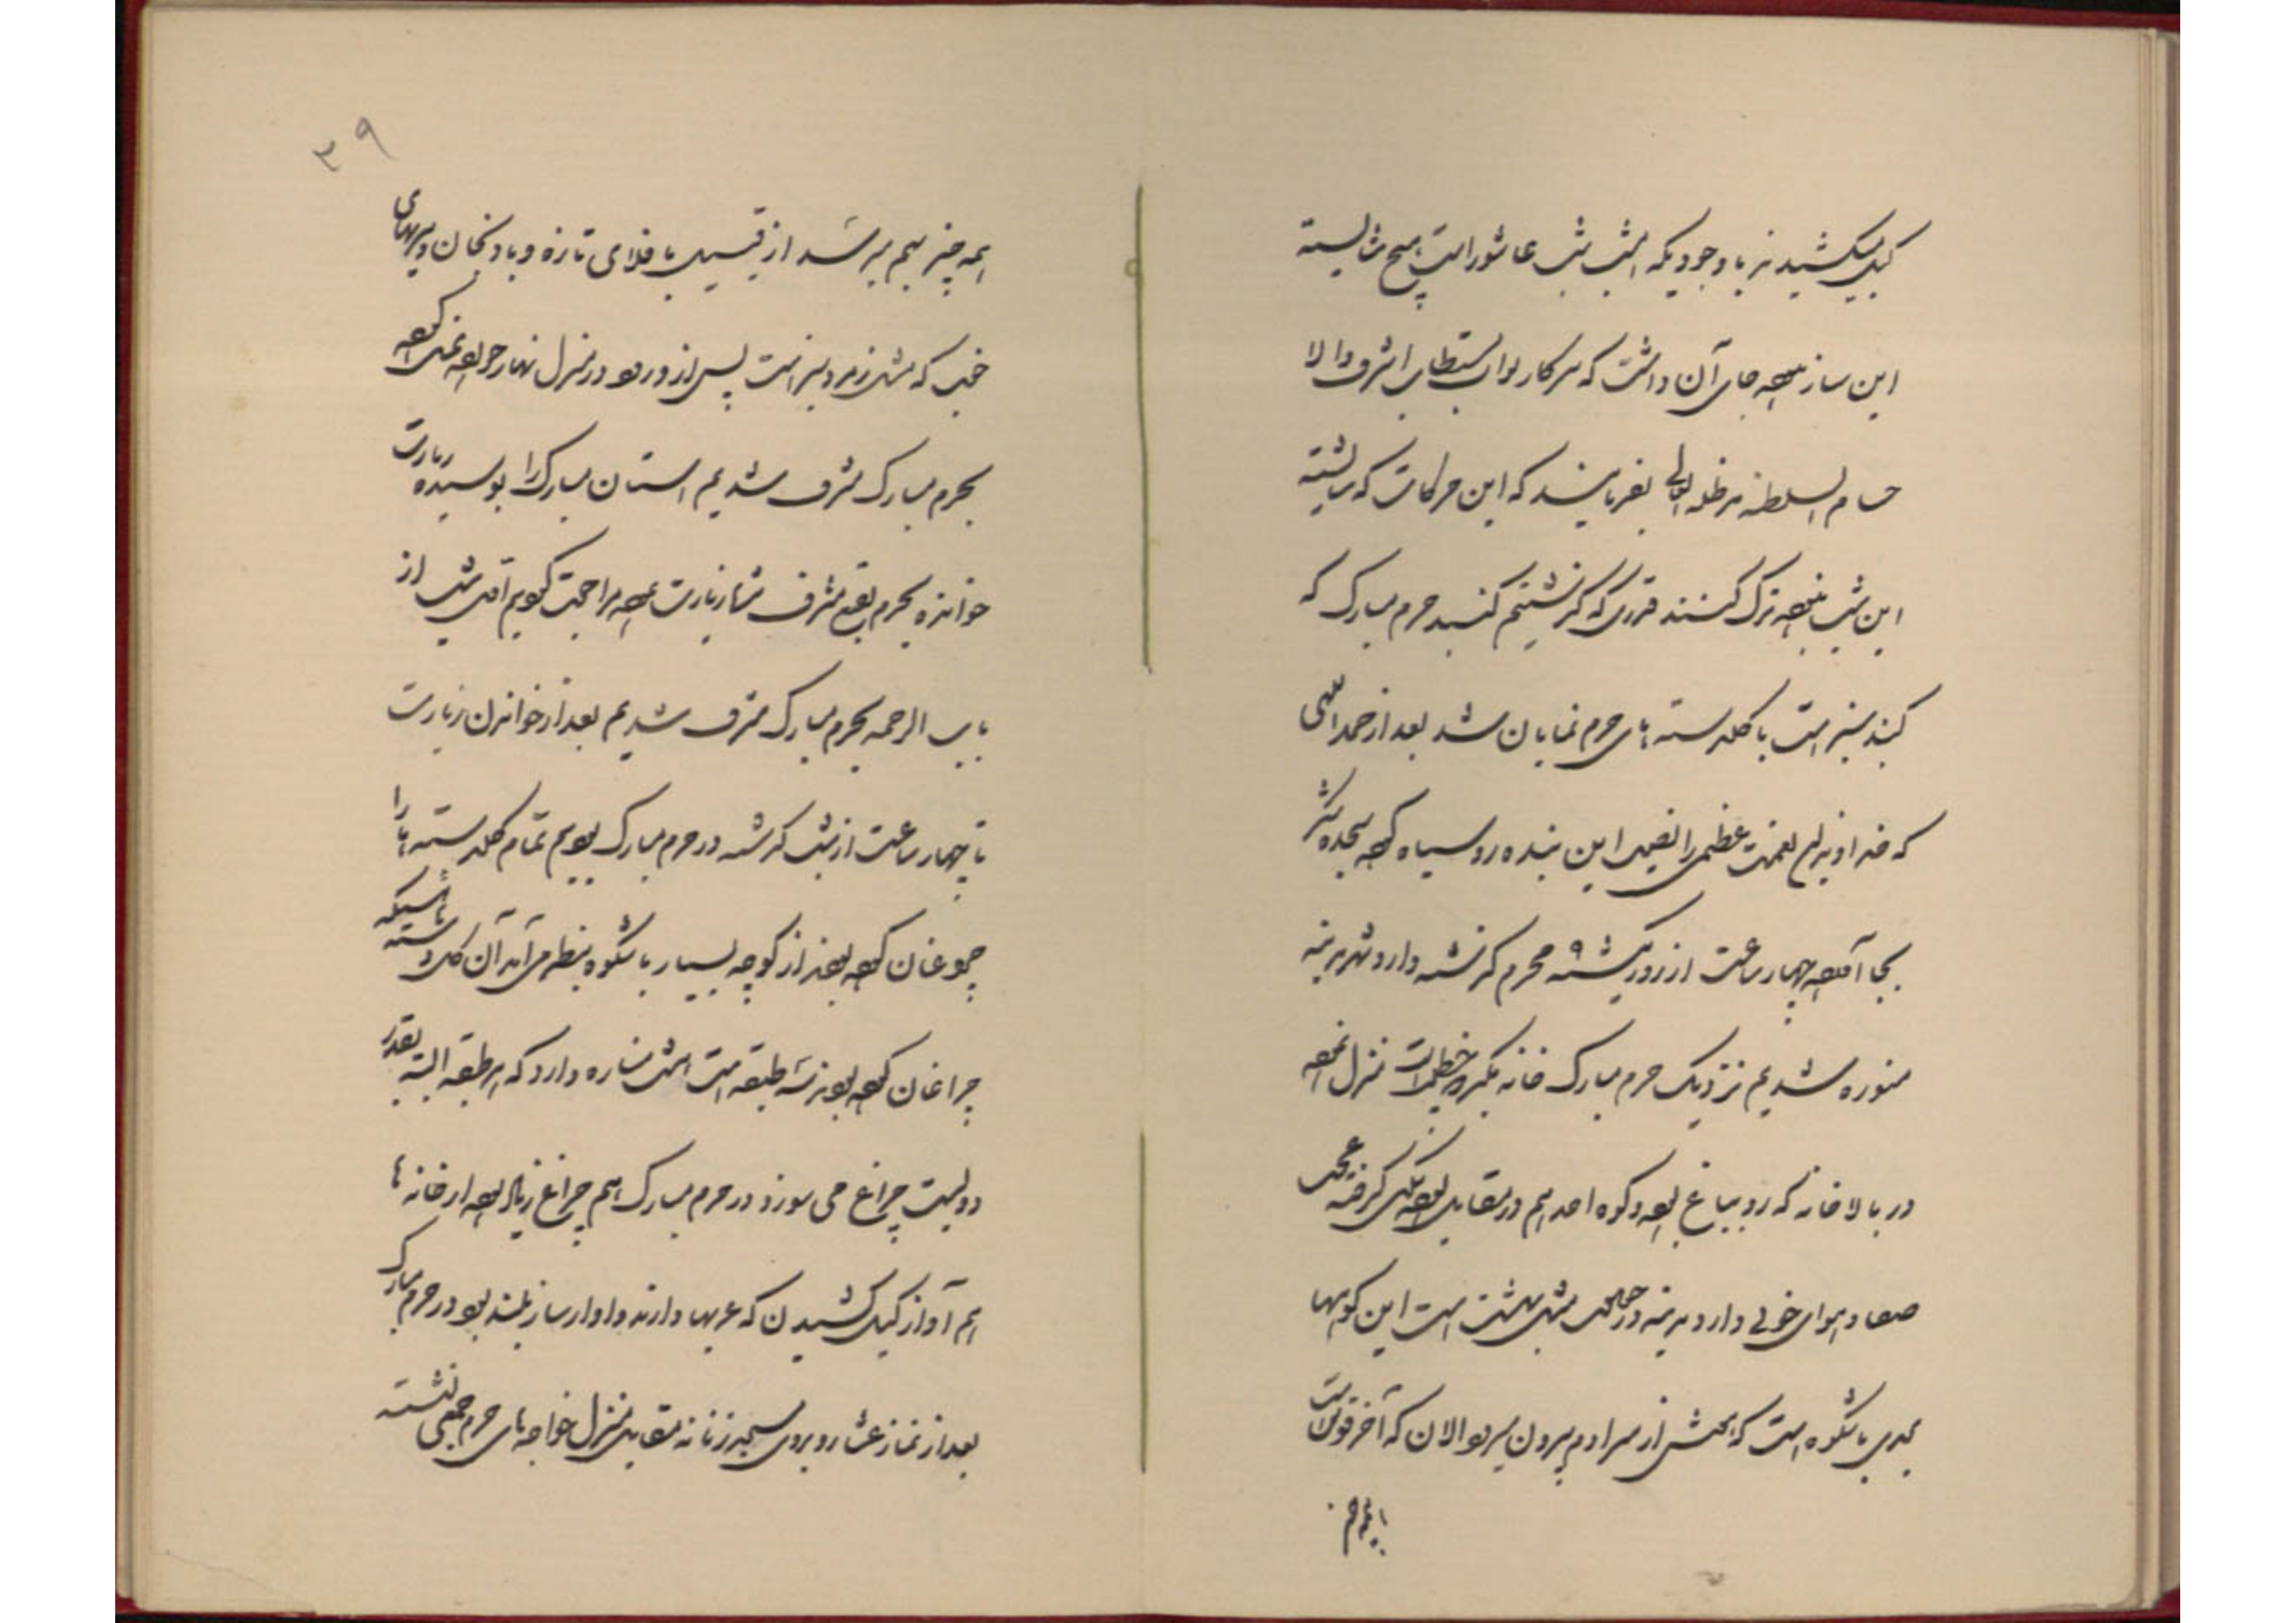 کیل میکشیدند با وجودیکه امشب شب عاشورا است هیچ شایسته
این ساز نبود جای آن داشت که سرکار نواب مستطاب اشرف والا
حسام السلطنه مد ظله العالی بفرمایند که این حرکات که
این شب نبود ترک کنند قدری که گذشتیم گنبد حرم مبارک که
گنبد سبز است با گلدسته های حرم نمایان شد بعد از حمد الهی
که خداوند این نعمت عظمی را نصیب این بنده رو سیاه کرد سجده شکر
بجا آمد چهار ساعت از روز یکشنبه ۹ محرم گذشته وارد شهر مدینه
منوره شدیم نزدیک حرم مبارک خانه منزل نموده
در بالا خانه که رو بباغ بود و کوه احد هم در مقابل بود منزل گرفته عجب
صفا و هوای خوبی دارد مدینه در حقیقت مثل بهشت است این کوهها
بحدی با شکوه است که هوش از سر آدم بیرون میرود الان که آخر قوس است
همه چیز
۳۹
همه چیز بهم میرسد از قبیل باقلای تازه و بادنجان و میوهای
خوب که مثل در منزل نهار خورده غسل کرده
بحرم مبارک مشرف شدیم آستان مبارک را بوسیده زیارت
خوانده بحرم بقیع مشرف شده زیارت نموده مراجعت کردیم اول شب از
باب الرحمه بحرم مبارک مشرف شدیم بعد از خواندن زیارت
تا چهار ساعت از شب گذشته در حرم مبارک بودیم تمام گلدسته ها را
چراغان کرده بودند از کوچه بسیار با شکوه بنظر می آمد آن گلدسته هائیکه
چراغان کرده بودند سه طبقه است مثل مناره دارد که هر طبقه البته بقدر
دویست چراغ می سوزد در حرم مبارک هم چراغ زیاد بود از خانه ها
هم آواز کیل کشیدن که عربها دارند و آواز ساز بلند بود در حرم مبارک
بعد از نماز عشا روبروی مسجد زنانه مقابل منزل خواجه های حرم جمعی نشسته